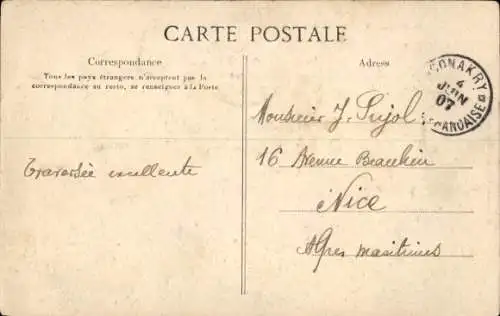 CARTE POSTALE
Correspondance
Tous les pays étrangers n'acceptent pas la
correspondance au recto, se renseigner à la Poste
Adresse
CONAKRY
4
JUIN
07
FRANCAISE
Traversée excellente
Monsieur J. Pujol
16 Avenue Beaulieu
Nice
Alpes maritimes